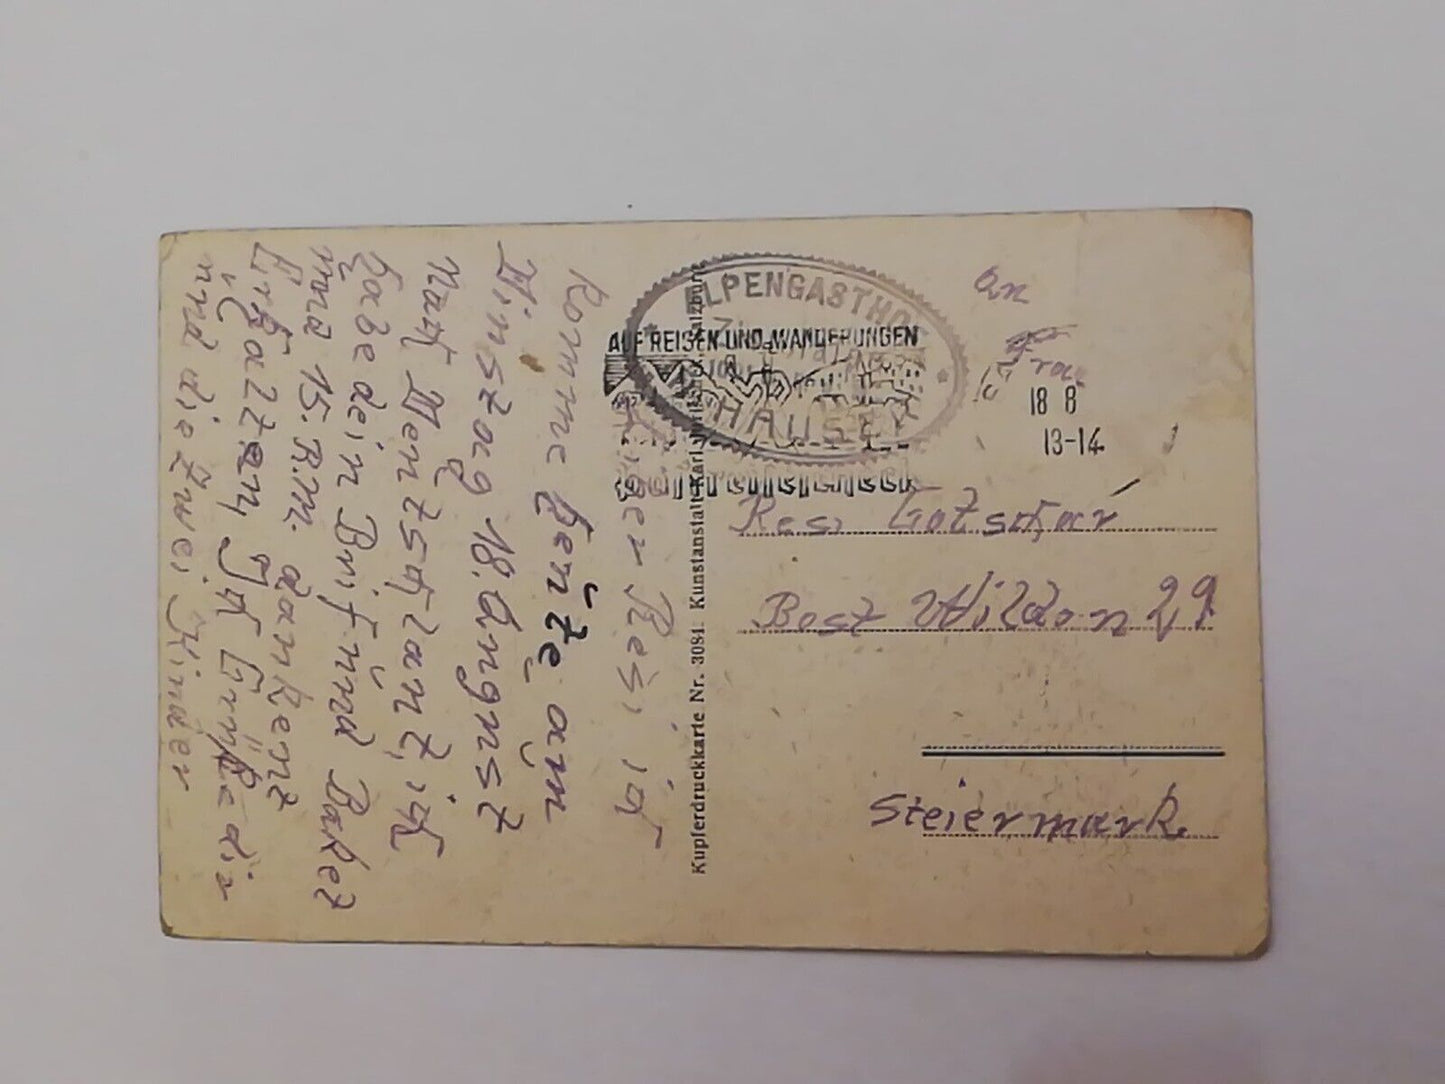 Lieber Resi ich
komme heute am
Dinstag 18. August
nach Deutschlant, ich
habe dein Brif und Paket
und 15. R.M. dankent
Erhalten, Ich Grüße dir
u.
und die Zwei Kinder
Kupferdruckkarte Nr. 3084. Kunstanstalt Karl Salzburg
ALPENGASTHOF
HAUSEK
AUF REISEN UND WANDERUNGEN
18 8
13-14
An
Frau
Resi
Post Wildon 29
Steiermark